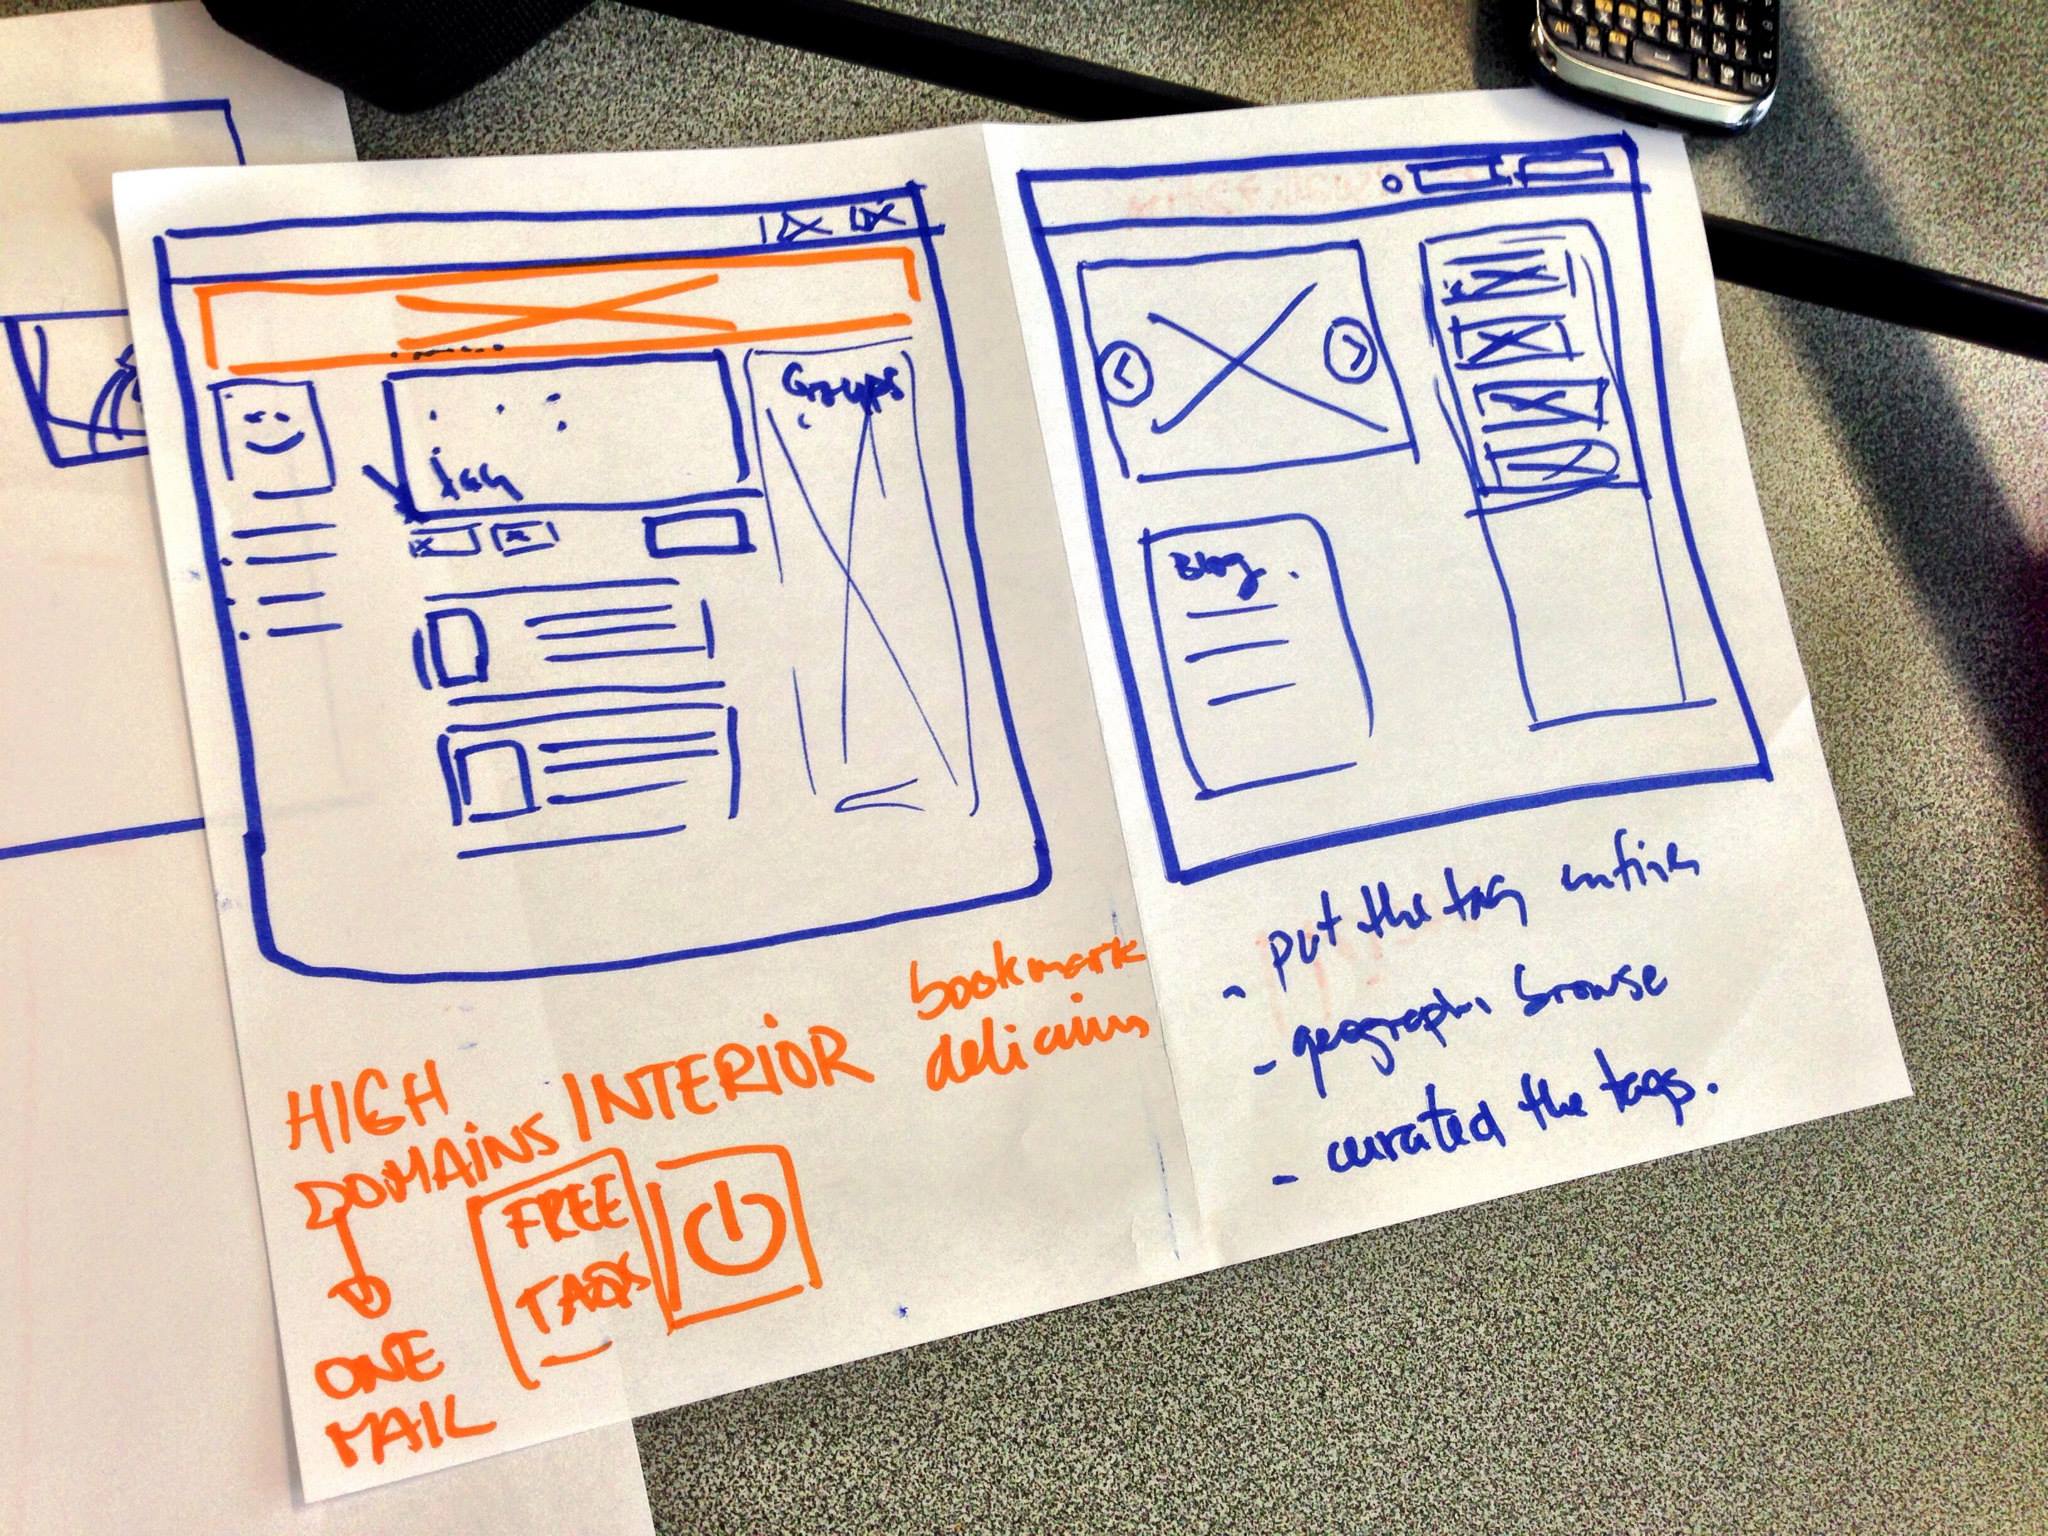 Groups
tag
HIGH
DOMAINS
INTERIOR
bookmark
delicious
FREE
TAGS
ONE
MAIL
Blog.
- put the tag
- geographi browse
- curated the tags.